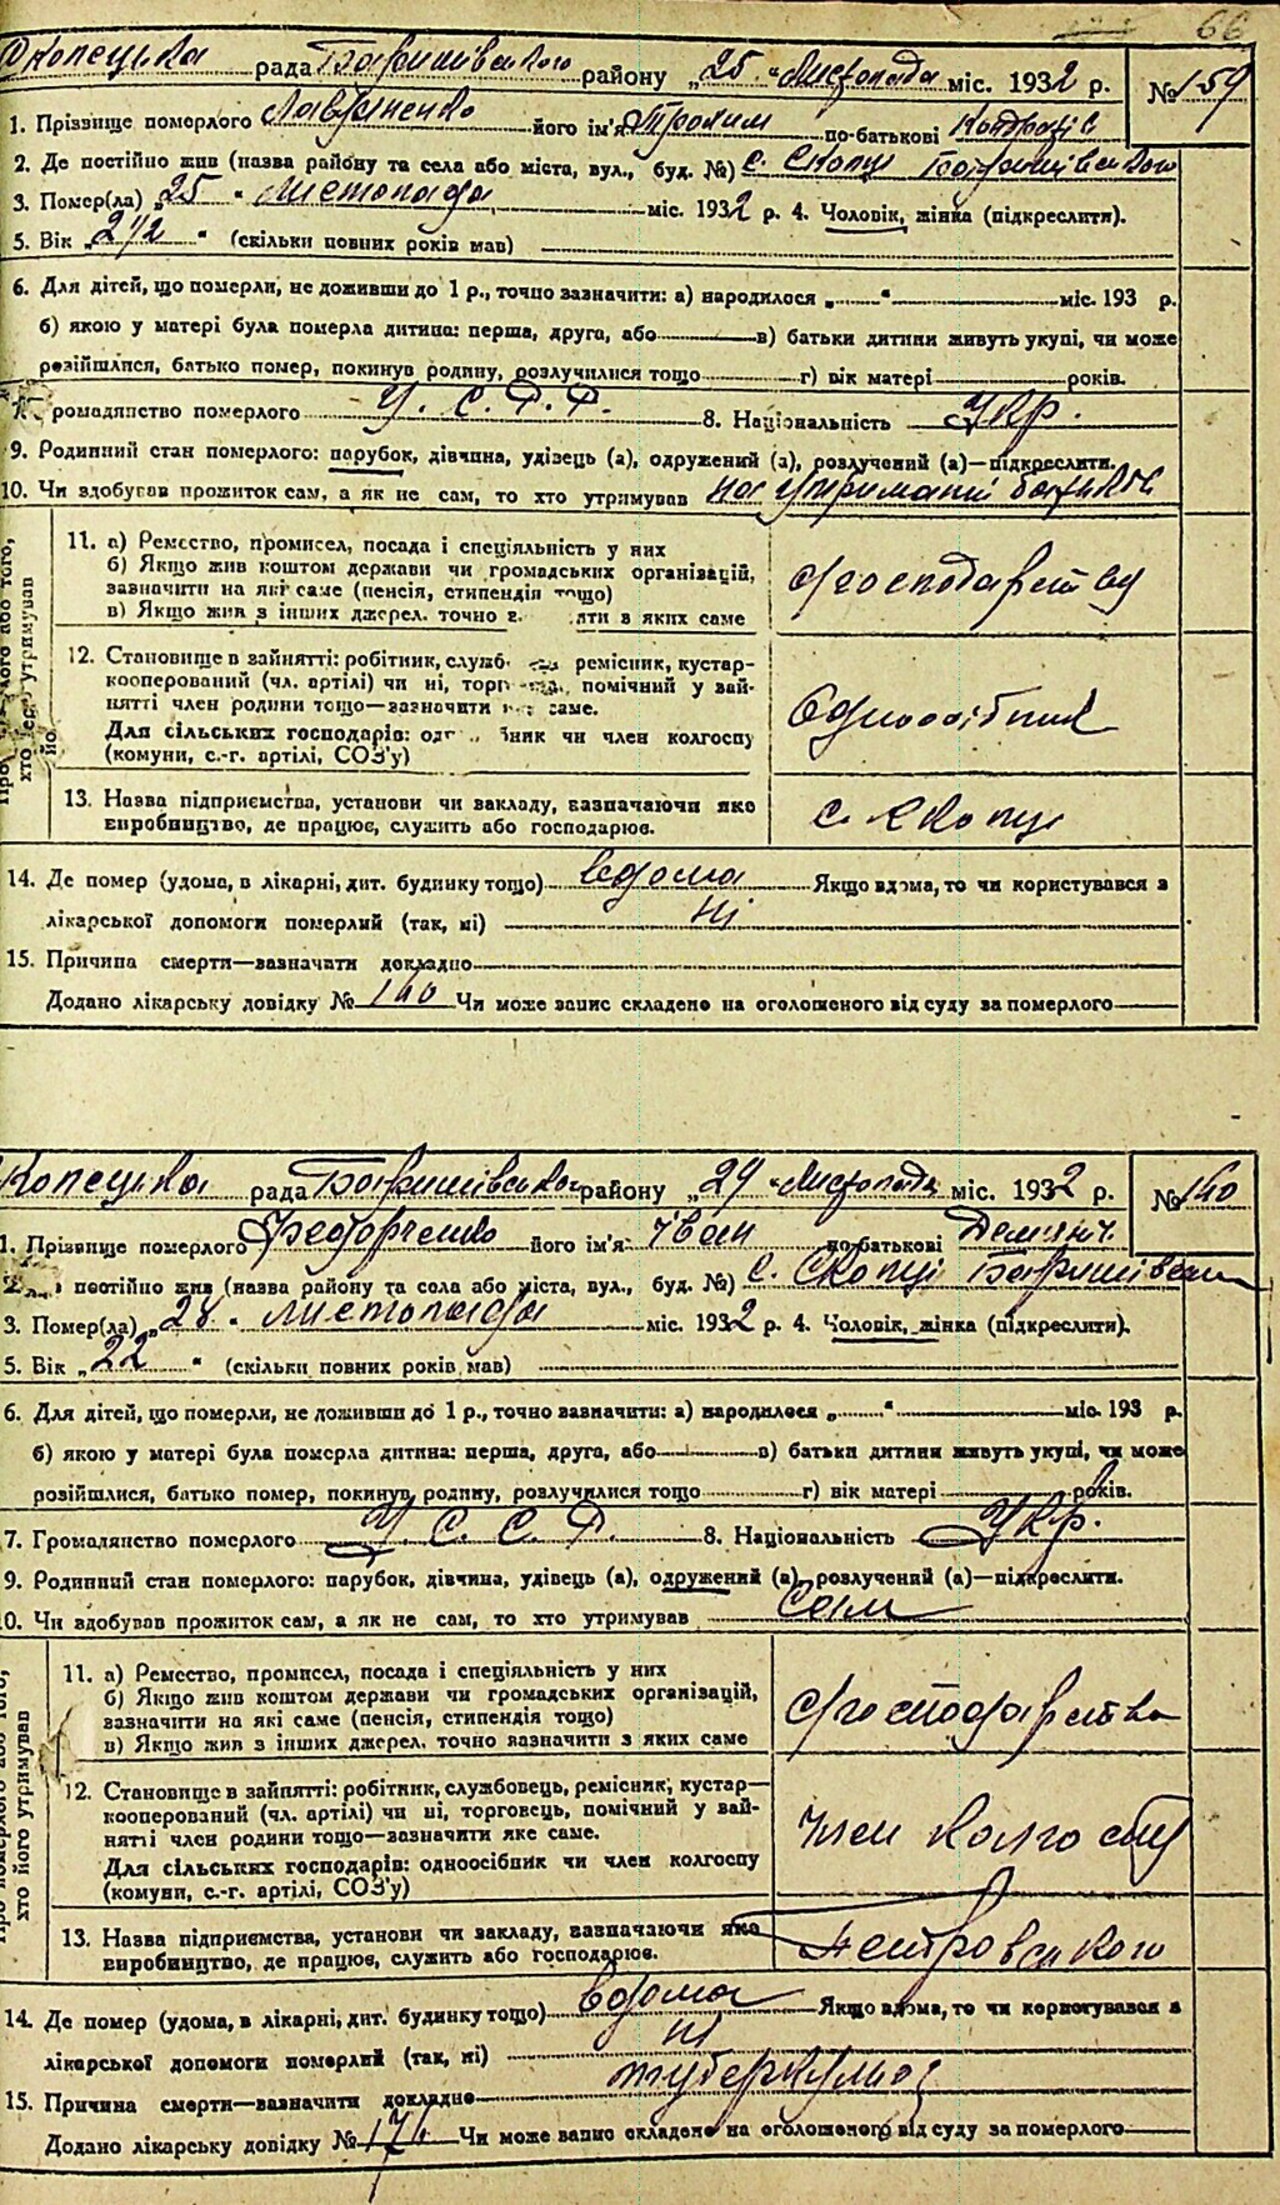 66
Скопецька рада Баришівського району „25“ Листопада міс. 1932 р. № 159
1. Прізвище померлого Лавриненко його ім'я Трохим по-батькові
2. Де постійно жив (назва району та села або міста, вул., буд. №) с. Скопці Баришівського
3. Помер(ла) „25“ Листопада міс. 1932 р. 4. Чоловік, жінка (підкреслити).
5. Вік „2 1/2“ (скільки повних років мав)
6. Для дітей, що померли, не доживши до 1 р., точно зазначити: а) народилося „ “ міс. 193 р.
б) якою у матері була померла дитина: перша, друга, або в) батьки дитини живуть укупі, чи може
розійшлися, батько помер, покинув родину, розлучилися тощо г) вік матері років.
ромадянство померлого У. С. Р. Р. 8. Національність Укр.
9. Родинний стан померлого: парубок, дівчина, удівець (а), одружений (а), розлучений (а)—підкреслити.
10. Чи здобував прожиток сам, а як не сам, то хто утримував на утриманні батьків
11. а) Ремество, промисел, посада і спеціяльність у них
б) Якщо жив коштом держави чи громадських організацій,
зазначити на які саме (пенсія, стипендія тощо)
в) Якщо жив з інших джерел. точно з яти з яких саме
господарству
12. Становище в зайнятті: робітник, служб ремісник, кустар-
кооперований (чл. артілі) чи ні, торг помічний у зай-
нятті член родини тощо—зазначити саме.
Для сільських господарів: од бник чи член колгоспу
(комуни, с.-г. артілі, СОЗ'у)
Одноосібник
13. Назва підприємства, установи чи закладу, зазначаючи яке
виробництво, де працює, служить або господарює.
с. Скопці
14. Де помер (удома, в лікарні, дит. будинку тощо) вдома Якщо вдома, то чи користувався з
лікарської допомоги померлий (так, ні) Ні
15. Причина смерти—зазначати докладно
Додано лікарську довідку № 140 Чи може запис складено на оголошеного від суду за померлого
копецька рада Баришівського району „29“ Листопада міс. 1932 р. № 160
1. Прізвище померлого Федорченко його ім'я Іван по-батькові Демянич
постійно жив (назва району та села або міста, вул., буд. №) с. Скопці Баришівськ
3. Помер(ла) „28“ листопада міс. 1932 р. 4. Чоловік, жінка (підкреслити).
5. Вік „22“ (скільки повних років мав)
6. Для дітей, що померли, не доживши до 1 р., точно зазначити: а) народилося „ “ міс. 193 р.
б) якою у матері була померла дитина: перша, друга, або в) батьки дитини живуть укупі, чи може
розійшлися, батько помер, покинув родину, розлучилися тощо г) вік матері років.
7. Громадянство померлого У. С. С. Р. 8. Національність Укр.
9. Родинний стан померлого: парубок, дівчина, удівець (а), одружений (а), розлучений (а)—підкреслити.
0. Чи здобував прожиток сам, а як не сам, то хто утримував Сам
11. а) Ремество, промисел, посада і спеціяльність у них
б) Якщо жив коштом держави чи громадських організацій,
зазначити на які саме (пенсія, стипендія тощо)
в) Якщо жив з інших джерел. точно зазначити з яких саме
господарства
12. Становище в зайнятті: робітник, службовець, ремісник, кустар—
кооперований (чл. артілі) чи ні, торговець, помічний у зай-
нятті член родини тощо—зазначити яке саме.
Для сільських господарів: одноосібник чи член колгоспу
(комуни, с.-г. артілі, СОЗ'у)
член колгоспу
13. Назва підприємства, установи чи закладу, зазначаючи яке
виробництво, де працює, служить або господарює.
Петровського
14. Де помер (удома, в лікарні, дит. будинку тощо) вдома Якщо вдома, то чи користувався з
лікарської допомоги померлий (так, ні) ні
15. Причина смерти—зазначити докладно туберкульоз
Додано лікарську довідку № 174 Чи може запис складено на оголошеного від суду за померлого